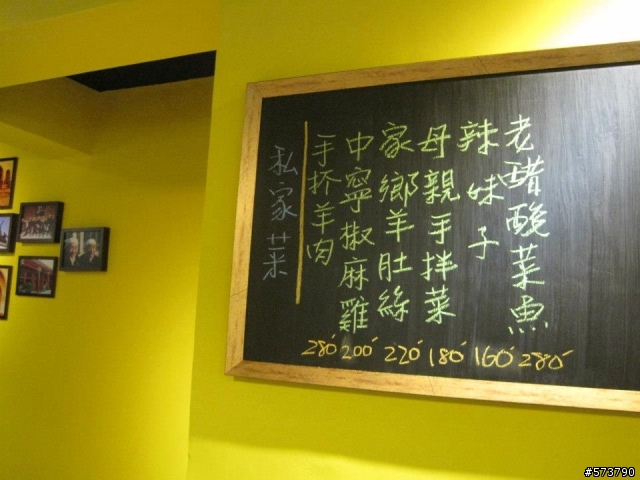 私家菜
手抔羊肉
中寧椒麻雞
家鄉羊肚絲
母親手拌菜
辣妹子
老醋酸菜魚
280 200 220 180 160 280
#573790